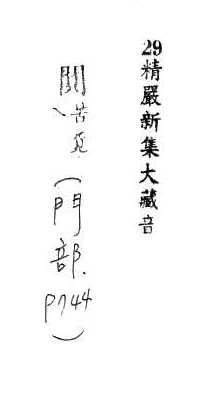 29精嚴新集大藏音
、苦
(門部.
P744)